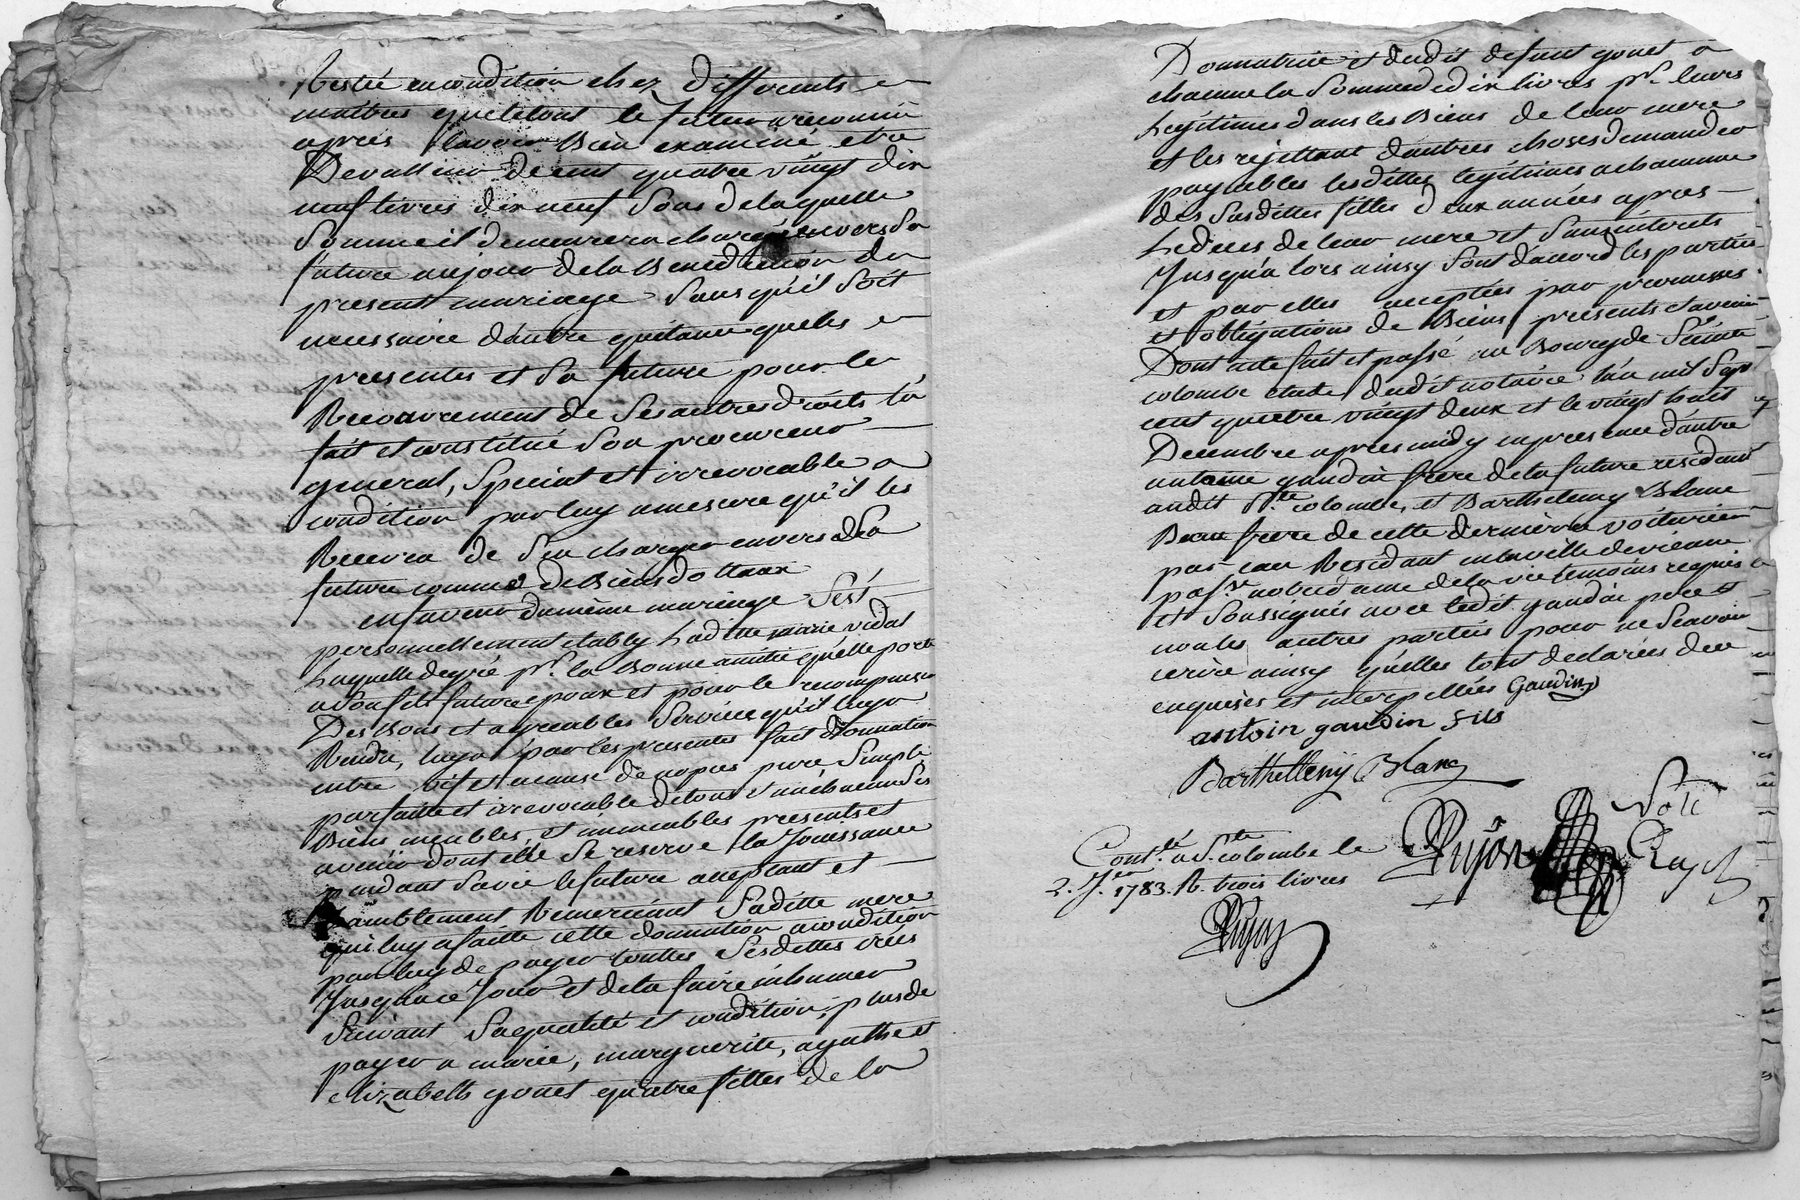 Restée en condition chez Differents
maitres que le tout le futur a reconnu
apres l'avoir Bien examiné etre
De valleur de cent quatre vingt dix
neuf livres dix neuf Sous de laquelle
Somme il demeurera chargé envers Sa
future au jour de la Benediction du
present mariage Sans qu'il Soit
necessaire d'autre quitance que les
presentes et Sa future pour le
Recouvrement de Ses autres droits l'a
fait et constitué Son procureur
general, Special et irrevocable a
condition par luy a mesure qu'il les
Recevra de S'en charger envers Sa
future comme de Biens dottaux
en faveur du même mariage S'est
personnellement etably Laditte marie vidal
Laquelle de gré pr. la Bonne amitié qu'elle porte
a Son fils futur epoux et pour le recompenser
Des Bons et agreables Services qu'il luy a
Rendu, luy a par les presentes fait donnation
entre vifs et a cause de nopces pure Simple
parfaite et irrevocable de tous et un chacun Ses
Biens meubles et immeubles presents et
avenir dont elle Se reserve la Jouissance
pendant Sa vie le futur acceptant et
humblement Remerciant Saditte mere
qui luy a faitte cette donnation a condition
par luy de payer touttes Ses dettes crées
Jusqu'a ce Jour et de la faire inhumer
Suivant Sa qualité et condition, plus de
payer a marie, marguerite, agathe et
elizabeth gonet quatre filles de la
Donnatrice et dudit defunt gonet a
chacune la Somme de dix livres pr. leurs
Legitimes dans les Biens de leur mere
et les rejettant d'autres choses demander
payables lesdittes legitimes a chacune
des Susdittes filles deux années apres
Le deces de leur mere et Sans interets
Jusqu'a lors ainsy Sont d'accord les parties
et par elles acceptées par promesses
et obligations de Biens presents et avenir
Dont acte fait et passé au Bourg de Sainte
colombe etude dudit notaire l'an mil Sept
cent quatre vingt deux et le vingt huit
Decembre apres midy en presence d'autre
antoine gaudin frere de la future residant
audit Ste. colombe, et Barthelemy Blanc
Beau frere de cette derniere voiturier
par eau Residant en la ville de vienne
parsse notre dame de la vie temoins requis
et Soussignés avec ledit gaudin pere et
non les autres parties pour ne Sçavoir
ecrire ainsy qu'elles l'ont declarées de ce
enquises et interpellées Gaudin
antoin gaudin fils
Barthelemy Blanc
Cont.lé a S.te colombe le
2. J.er 1783. R. trois livres
Pujon
Pujon